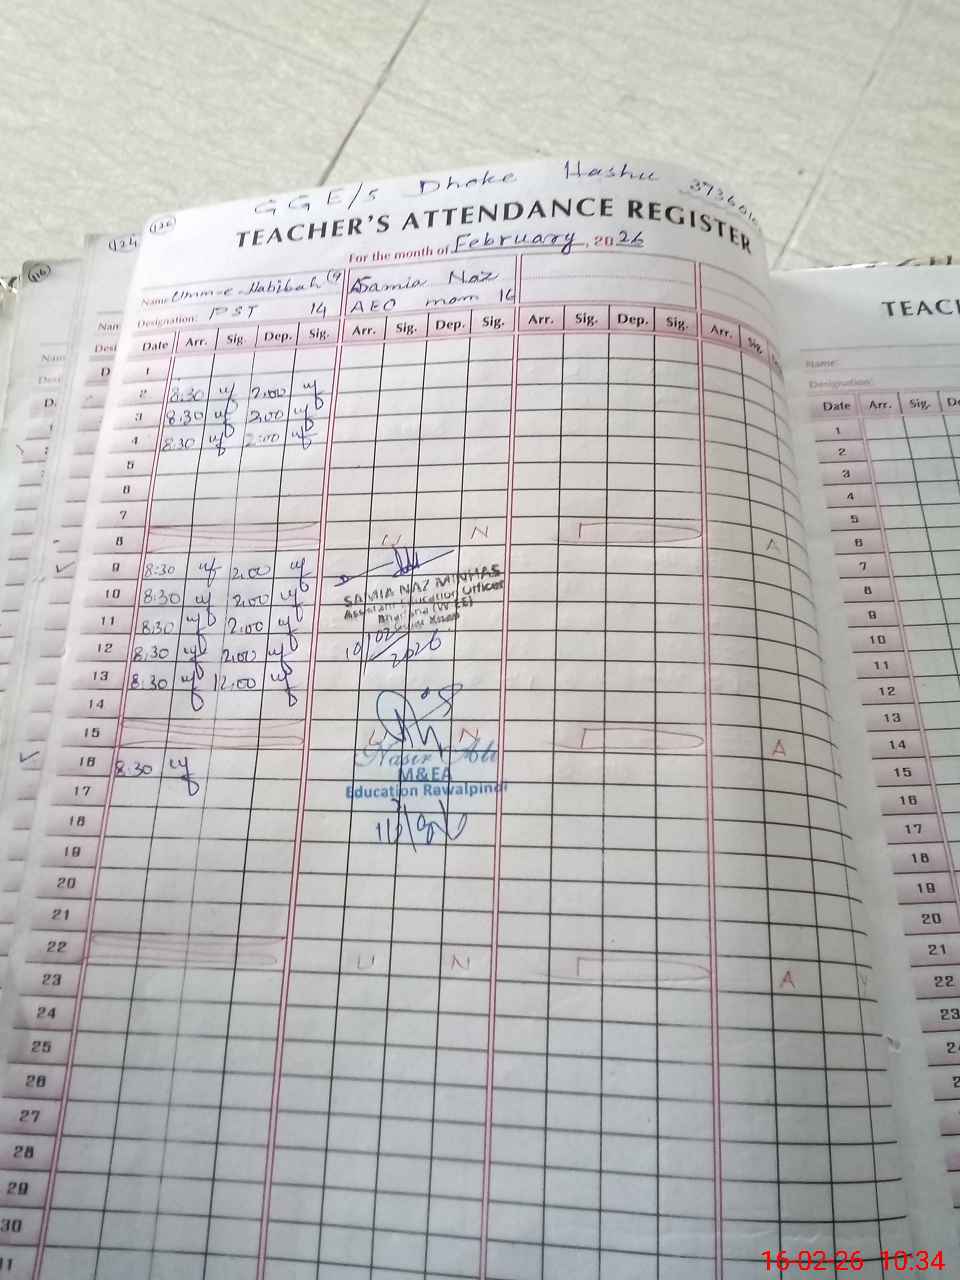 GGE/S Dhoke Hashu
TEACHER'S ATTENDANCE REGISTER
For the month of February, 2026
Name: Umm-e-Habibah Samia Naz
Designation: PST 14 AEO mam 16
Date Arr. Sig. Dep. Sig. Arr. Sig. Dep. Sig. Arr. Sig. Dep. Sig. Arr. Sig.
1
2 8:30 2:00
3 8:30 2:00
4 8:30 2:00
5
6
7
8 U N A
9 8:30 2:00
10 8:30 2:00
SAMIA NAZ MINHAS
Assistant Education Officer
11 8:30 2:00
12 8:30 2:00
10/02/2026
13 8:30 12:00
14
15 U N A
16 8:30
Nasir Ali
M&EA
Education Rawalpindi
17
18
19
20
21
22 U N A
23
24
25
26
27
28
29
30
124
126
116
TEAC
Name:
Designation:
Date Arr. Sig. De
1
2
3
4
5
6
7
8
9
10
11
12
13
14
15
16
17
18
19
20
21
22
23
16-02-26 10:34